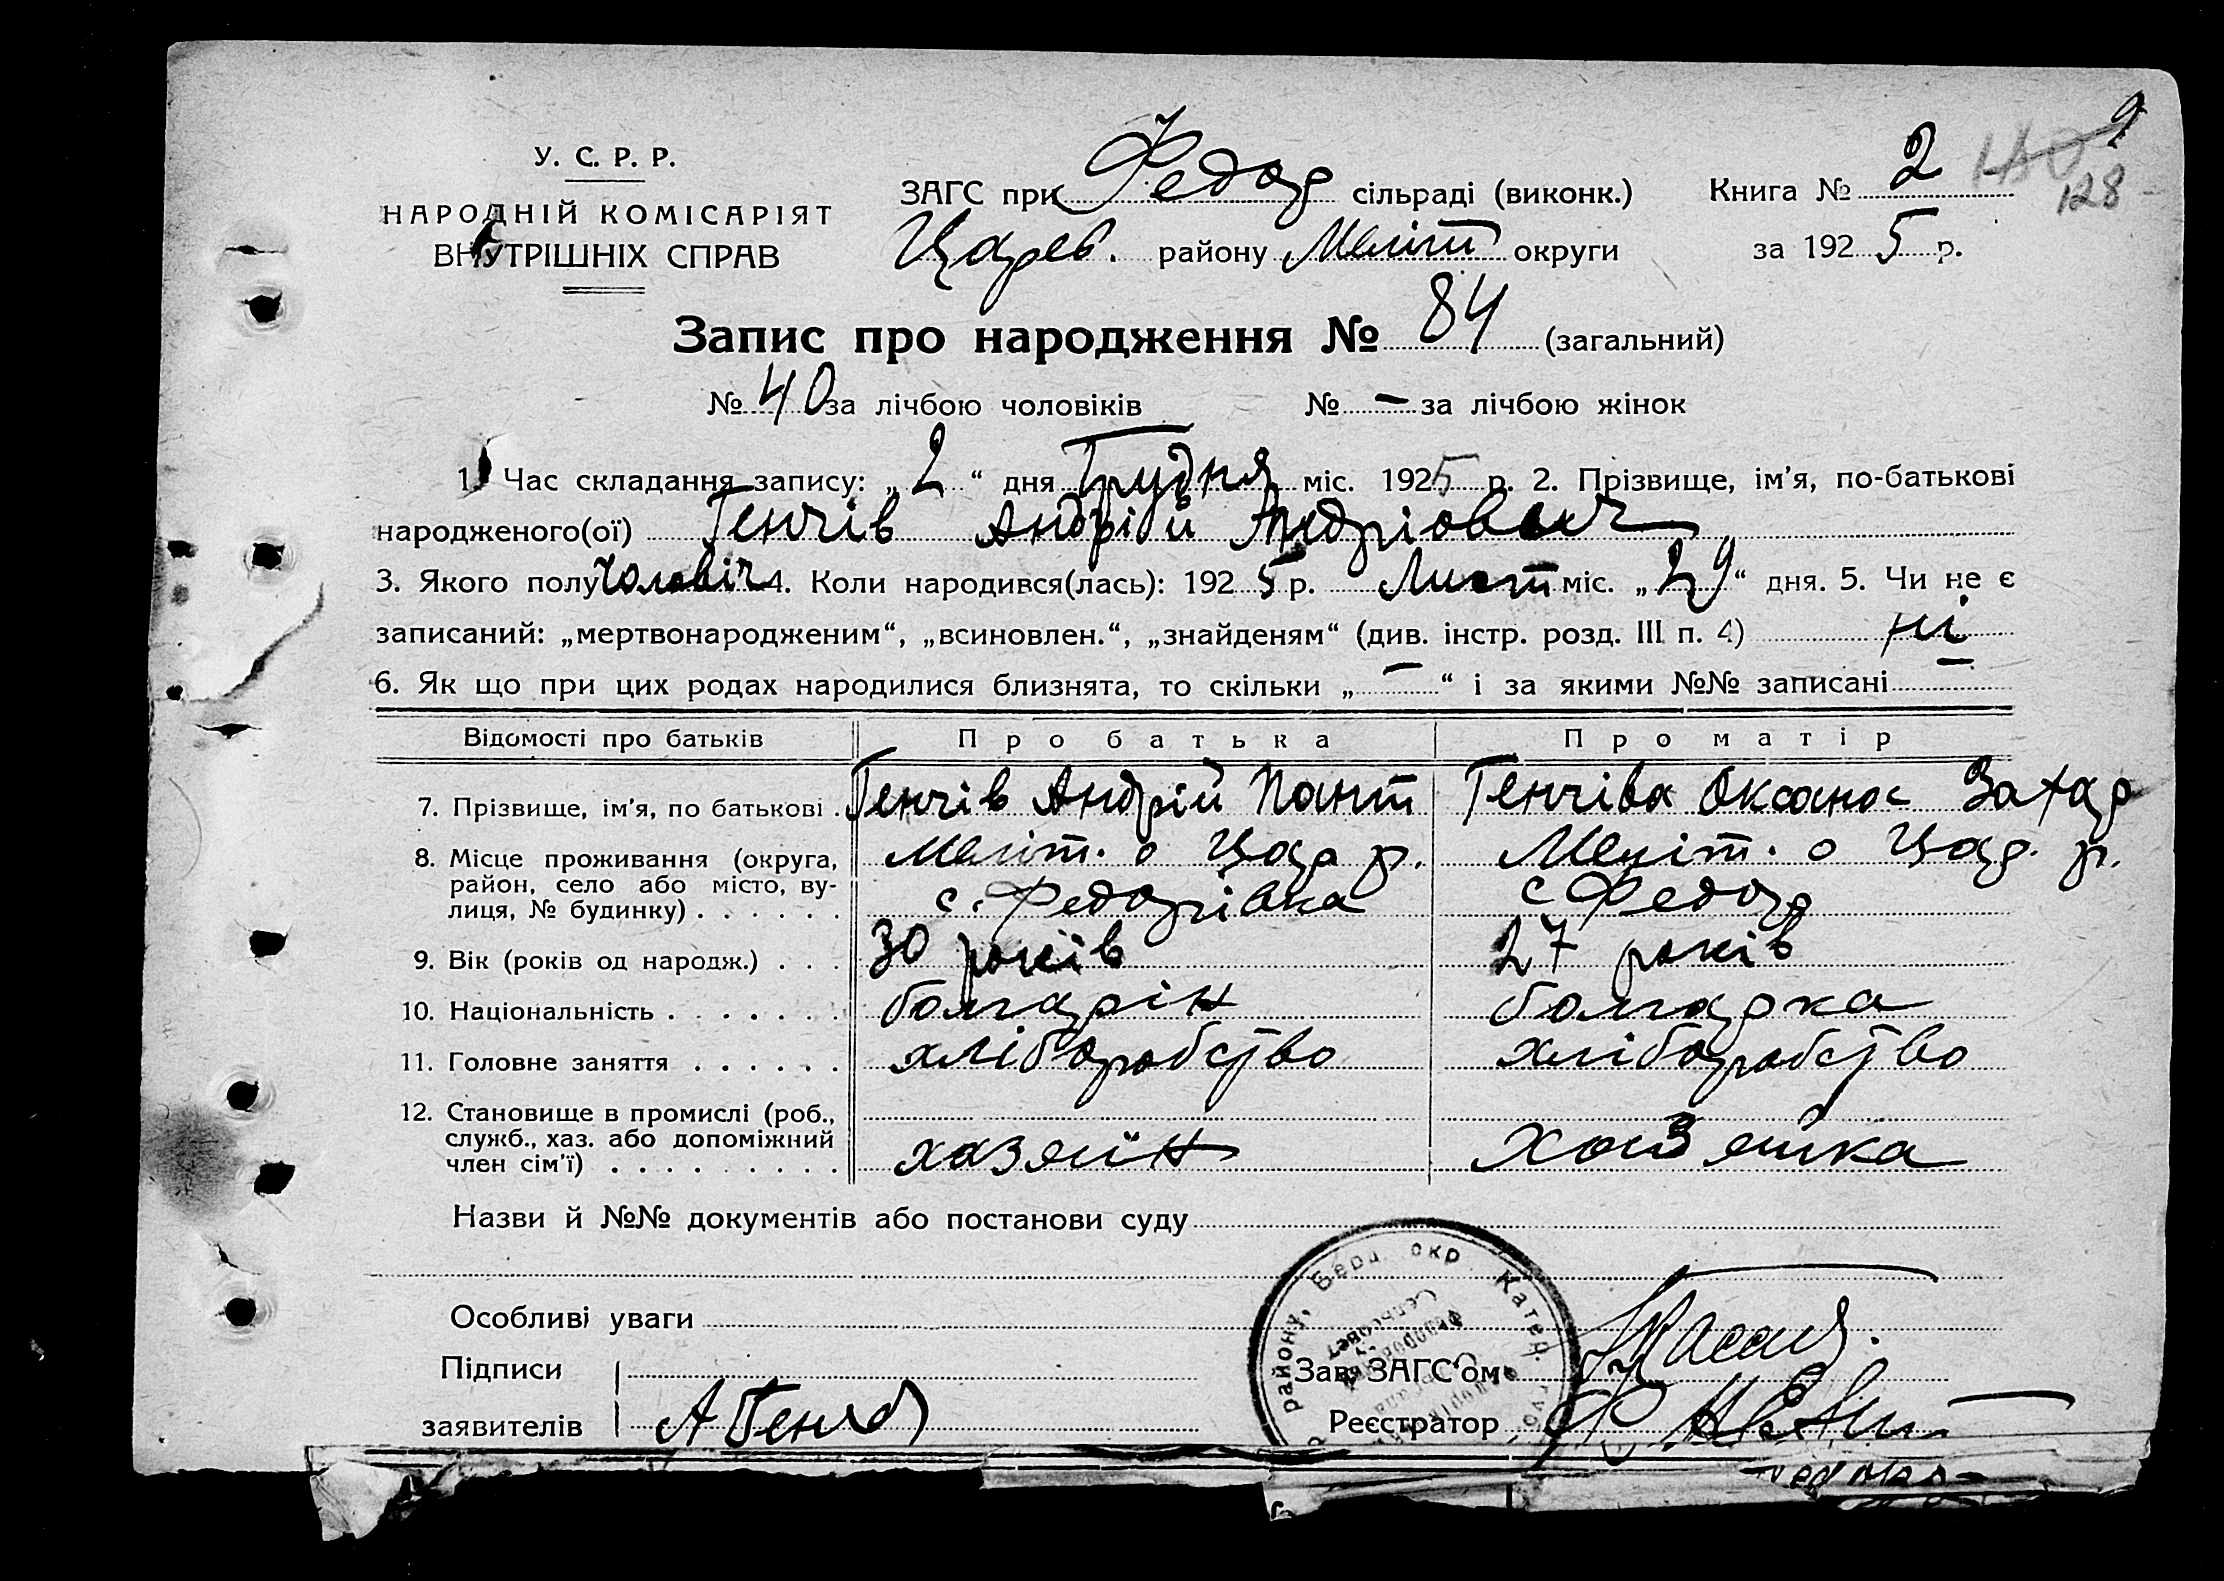 У. С. Р. Р.
НАРОДНІЙ КОМІСАРІЯТ
ВНУТРІШНІХ СПРАВ
ЗАГС при Федор сільраді (виконк.)
Царев. району Меліт округи
Книга № 2
128
за 1925 р.
Запис про народження № 84 (загальний)
№ 40 за лічбою чоловіків № — за лічбою жінок
1. Час складання запису: „2“ дня Грудня міс. 1925 р. 2. Прізвище, ім'я, по-батькові
народженого(ої) Генчів Андрій Андріович
3. Якого полу Чоловіч 4. Коли народився(лась): 1925 р. Лист міс. „29“ дня. 5. Чи не є
записаний: „мертвонародженим“, „всиновлен.“, „знайденям“ (див. інстр. розд. III п. 4) ні
6. Як що при цих родах народилися близнята, то скільки „—“ і за якими №№ записані —
Відомості про батьків Про батька Про матір
7. Прізвище, ім'я, по батькові . Генчів Андрій Пант Генчіва Оксана Захар
8. Місце проживання (округа, район, село або місто, вулиця, № будинку) . . . . . . Меліт. о Цар р. Меліт. о Цар. р.
с. Федорівка с Федор
9. Вік (років од народж.) . . . 30 років 27 років
10. Національність . . . . . . . болгарін болгарка
11. Головне заняття . . . . . . хліборобство хліборобство
12. Становище в промислі (роб., служб., хаз. або допоміжний член сім'ї) . . . . . . . . . хазяїн хозяйка
Назви й №№ документів або постанови суду
Особливі уваги
Підписи
заявителів
Зав. ЗАГС'ом
Реєстратор
району, Берд. окр. Катер.